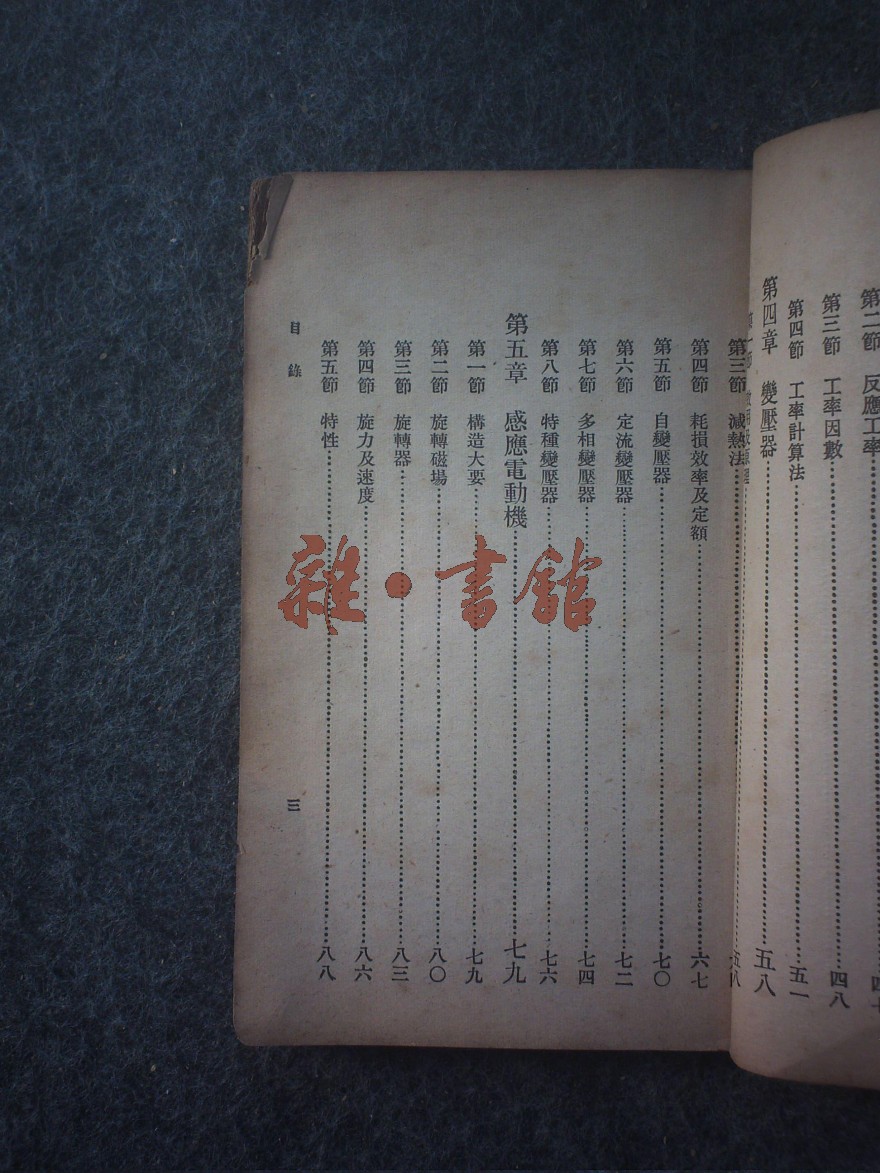 第二節 反應工率
第三節 工率因數 四八
第四節 工率計算法 五一
第四章 變壓器 五八
第三節 減熱法
第四節 耗損效率及定額 六七
第五節 自變壓器 七〇
第六節 定流變壓器 七二
第七節 多相變壓器 七四
第八節 特種變壓器 七六
第五章 感應電動機 七九
第一節 構造大要 七九
第二節 旋轉磁場 八〇
第三節 旋轉器 八三
第四節 旋力及速度 八六
第五節 特性 八八
目錄 三
雜·書館